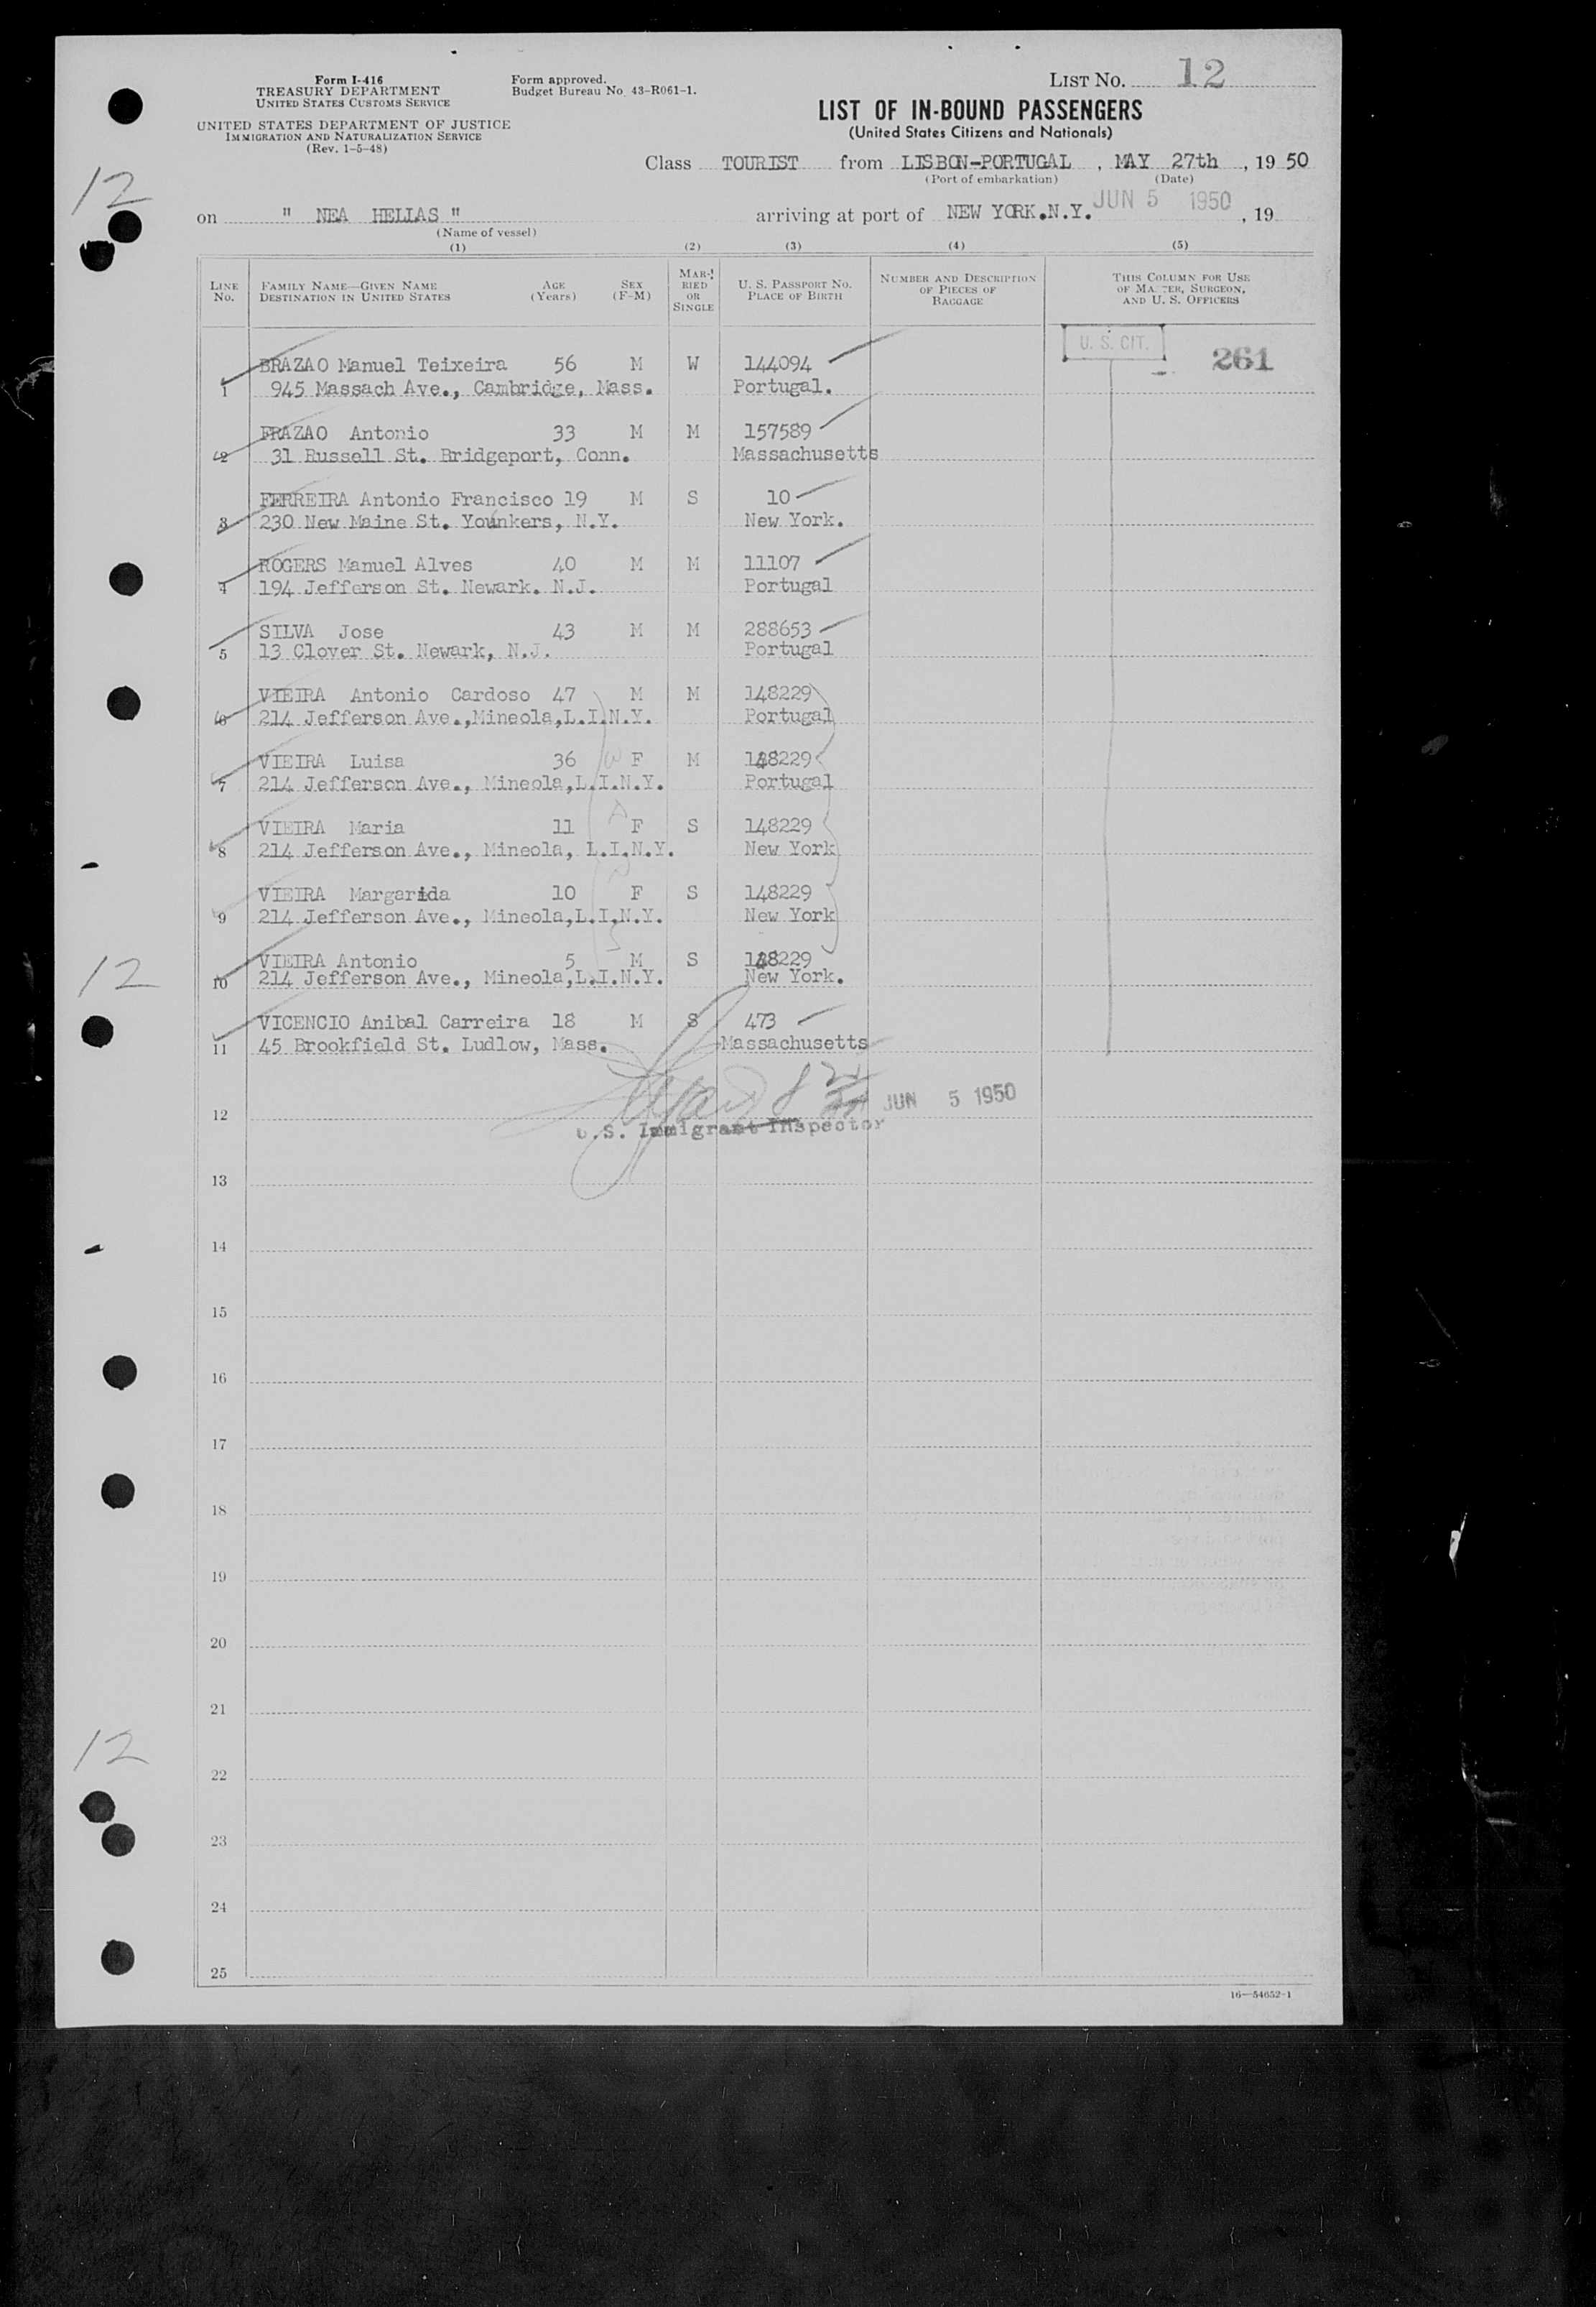 Form I-416
TREASURY DEPARTMENT
UNITED STATES CUSTOMS SERVICE
UNITED STATES DEPARTMENT OF JUSTICE
IMMIGRATION AND NATURALIZATION SERVICE
(Rev. 1-5-48)
Form approved.
Budget Bureau No. 43-R061-1.
LIST NO. 12
LIST OF IN-BOUND PASSENGERS
(United States Citizens and Nationals)
Class TOURIST from LISBON-PORTUGAL , MAY 27th , 19 50
(Port of embarkation) (Date)
12
on " NEA HELLAS " arriving at port of NEW YORK.N.Y. JUN 5 1950 , 19
(Name of vessel)
(1) (2) (3) (4) (5)
LINE NO.
FAMILY NAME—GIVEN NAME
DESTINATION IN UNITED STATES
AGE (Years)
SEX (F-M)
MARRIED OR SINGLE
U. S. PASSPORT NO.
PLACE OF BIRTH
NUMBER AND DESCRIPTION OF PIECES OF BAGGAGE
THIS COLUMN FOR USE OF MASTER, SURGEON, AND U. S. OFFICERS
U. S. CIT. 261
BRAZAO Manuel Teixeira 56 M W 144094
1 945 Massach Ave., Cambridge, Mass. Portugal.
FRAZAO Antonio 33 M M 157589
2 31 Russell St. Bridgeport, Conn. Massachusetts
FERREIRA Antonio Francisco 19 M S 10
3 230 New Maine St. Younkers, N.Y. New York.
ROGERS Manuel Alves 40 M M 11107
4 194 Jefferson St. Newark. N.J. Portugal
SILVA Jose 43 M M 288653
5 13 Clover St. Newark, N.J. Portugal
VIEIRA Antonio Cardoso 47 M M 148229
6 214 Jefferson Ave.,Mineola,L.I.N.Y. Portugal
VIEIRA Luisa 36 F M 148229
7 214 Jefferson Ave., Mineola,L.I.N.Y. Portugal
VIEIRA Maria 11 F S 148229
8 214 Jefferson Ave., Mineola, L.I.N.Y. New York
VIEIRA Margarida 10 F S 148229
9 214 Jefferson Ave., Mineola,L.I.N.Y. New York
VIEIRA Antonio 5 M S 148229
10 214 Jefferson Ave., Mineola,L.I.N.Y. New York.
12
VICENCIO Anibal Carreira 18 M S 473
11 45 Brookfield St. Ludlow, Mass. Massachusetts
12 JUN 5 1950
U.S. Immigrant Inspector
13
14
15
16
17
18
19
20
21
12
22
23
24
25
16—54652-1